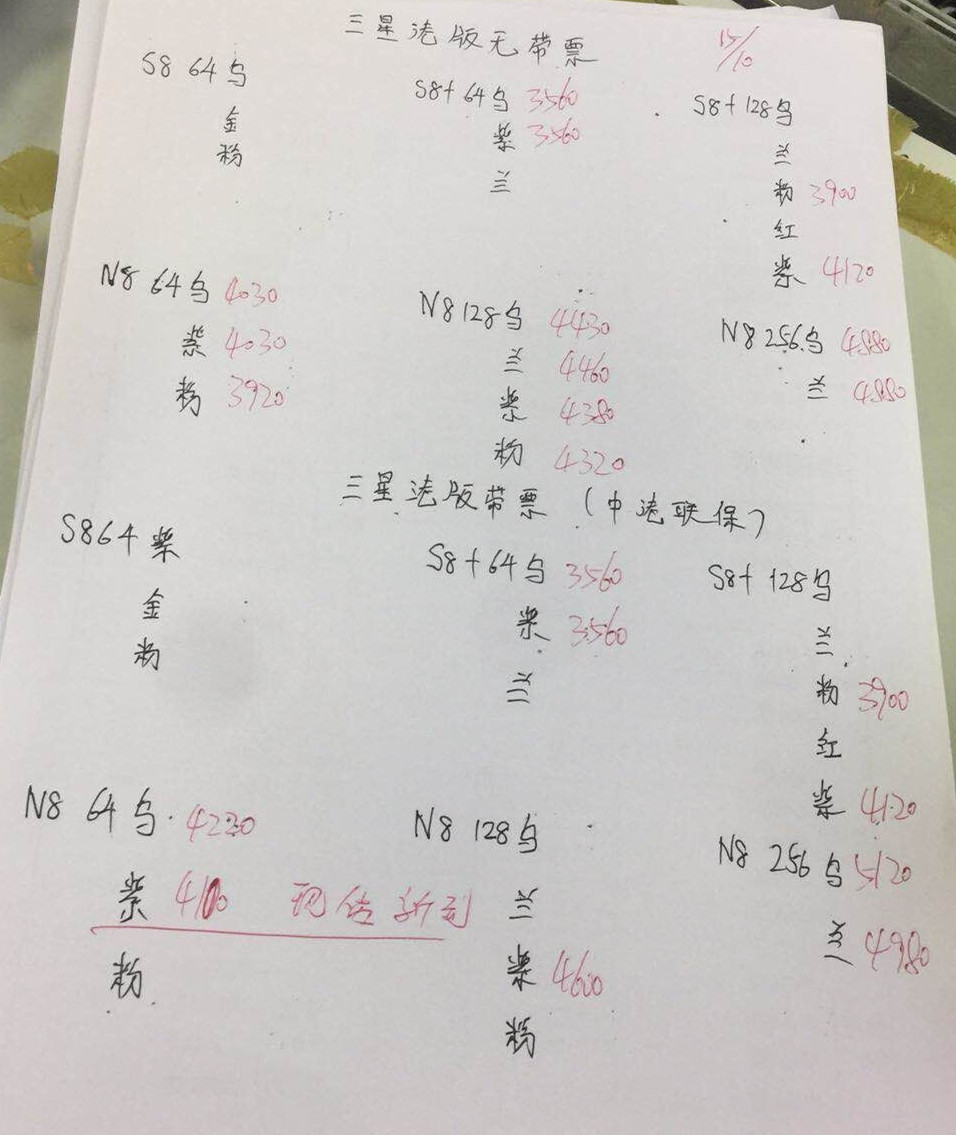 三星法版无带票
15/10
S8 64乌
金
粉
S8+ 64乌 3560
紫 3560
兰
S8+ 128乌
兰
粉 3900
红
紫 4120
N8 64乌 4030
紫 4030
粉 3920
N8 128乌 4430
兰 4460
紫 4380
粉 4320
N8 256乌 4880
兰 4880
三星法版带票（中法联保）
S8 64紫
金
粉
S8+ 64乌 3560
紫 3560
兰
S8+ 128乌
兰
粉 3900
红
紫 4120
N8 64乌 4230
紫 新到
粉
N8 128乌
兰
紫 4600
粉
N8 256乌 5120
兰 4980